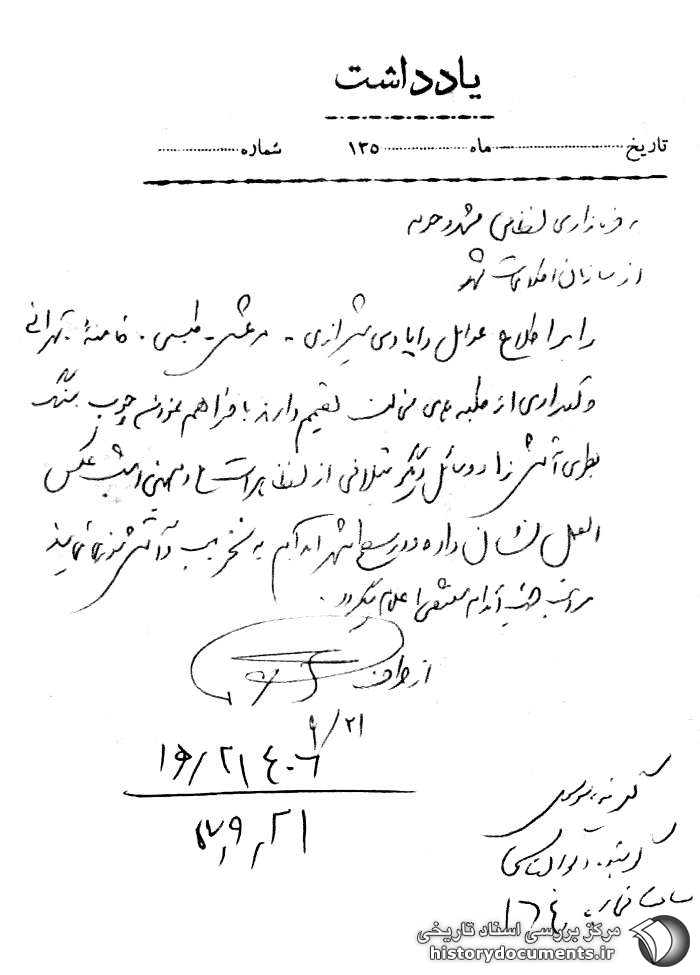 یادداشت
تاریخ ماه ۱۳۵ شماره
به فرمانداری نظامی مشهد و حومه
از سازمان اطلاعات مشهد
برابر اطلاع عوامل وابادی شیرازی - مرعشی - طبسی - خامنه‌ تهرانی
و تعدادی از طلبه‌های مخالف تصمیم دارند با فراهم نمودن چوب سنگ
بطری آتش‌زا و وسائل دیگر بتلافی از تظاهرات میهنی امشب عکس
العمل نشان داده و در سطح شهر اقدام به تخریب و آتش‌سوزی نمایند
مراتب جهت اقدام مقتضی اعلام میگردد.
از طرف
۹/۲۱
۱۹/۲۱ ۴۰۶
۵۷,۹,۲۱
گیرنده
ساعت مخابره ۱۶۴۰
مرکز بررسی اسناد تاریخی
historydocuments.ir